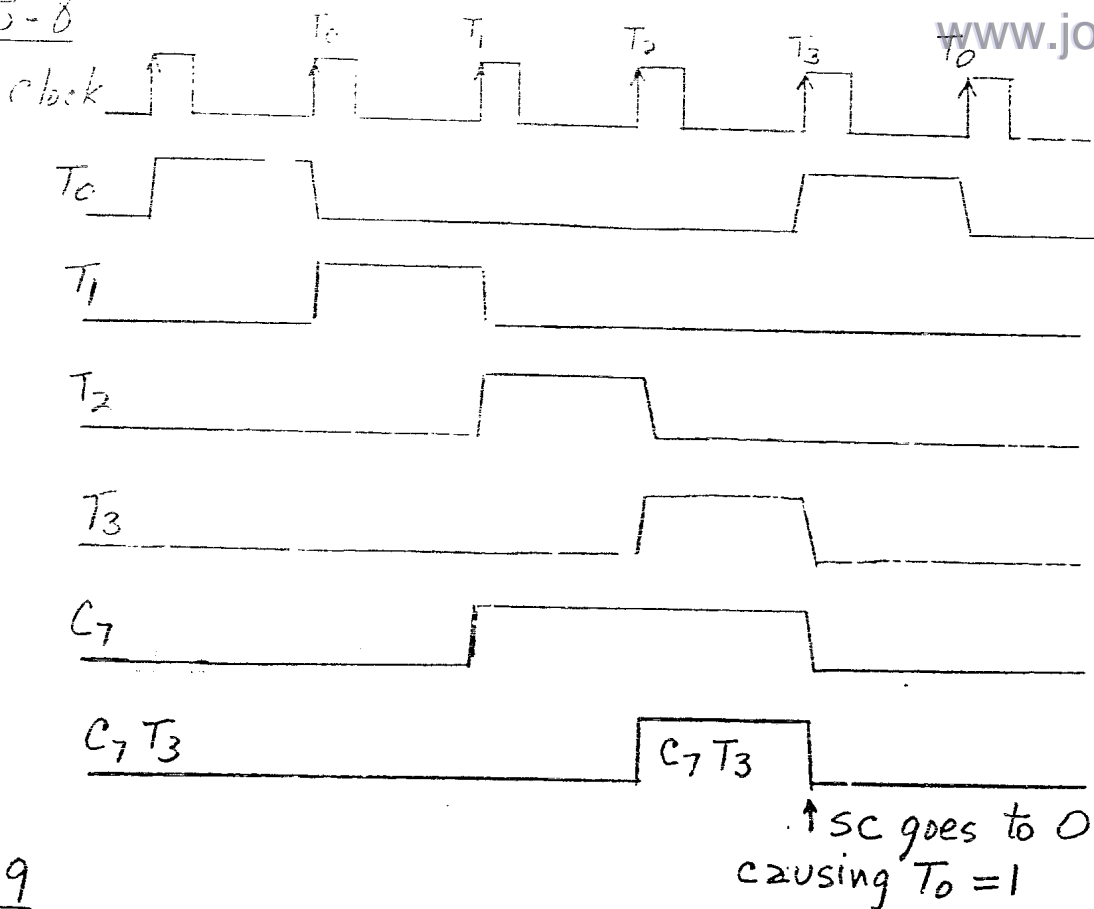 5-8
www.jo
T0 T1 T2 T3 T0
Clock
T0
T1
T2
T3
C7
C7 T3
C7 T3
SC goes to 0
causing T0 = 1
9